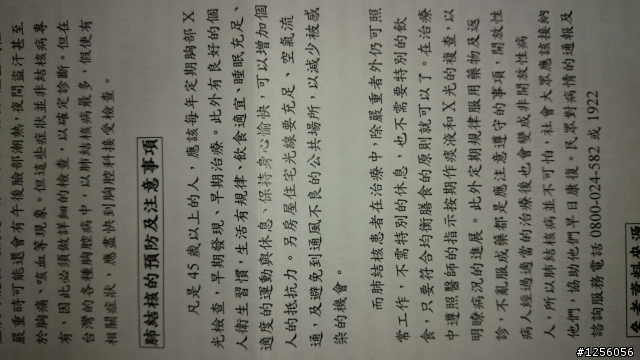 嚴重時可能還會有午後臉部潮熱，夜間盜汗甚至
於胸痛，咳血等現象。但這些症狀並非結核病專
有，因此必須做詳細的檢查，以確定診斷。但在
台灣的各種胸腔病中，以肺結核病最多，假使有
相關症狀，應盡快到胸腔科接受檢查。
肺結核的預防及注意事項
凡是 45 歲以上的人，應該每年定期胸部 X
光檢查，早期發現、早期治療。此外有良好的個
人衛生習慣，生活有規律、飲食適宜、睡眠充足、
適度的運動與休息、保持身心愉快，可以增加個
人的抵抗力。另房屋住宅光線要充足、空氣流
通，及避免到通風不良的公共場所，以減少被感
染的機會。
而肺結核患者在治療中，除嚴重者外仍可照
常工作，不需特別的休息，也不需要特別的飲
食，只要符合均衡膳食的原則就可以了。在治療
中遵照醫師的指示按期作痰液和 X 光的複查，以
明瞭病況的進展。此外定期規律服用藥物及返
診，不亂服成藥都是應注意遵守的事項，開放性
病人經過適當的治療後也會變成非開放性病
人，所以肺結核病並不可怕，社會大眾應該接納
他們，協助他們早日康復。民眾對病情的通報及
諮詢服務電話 0800-024-582 或 1922
#1256056